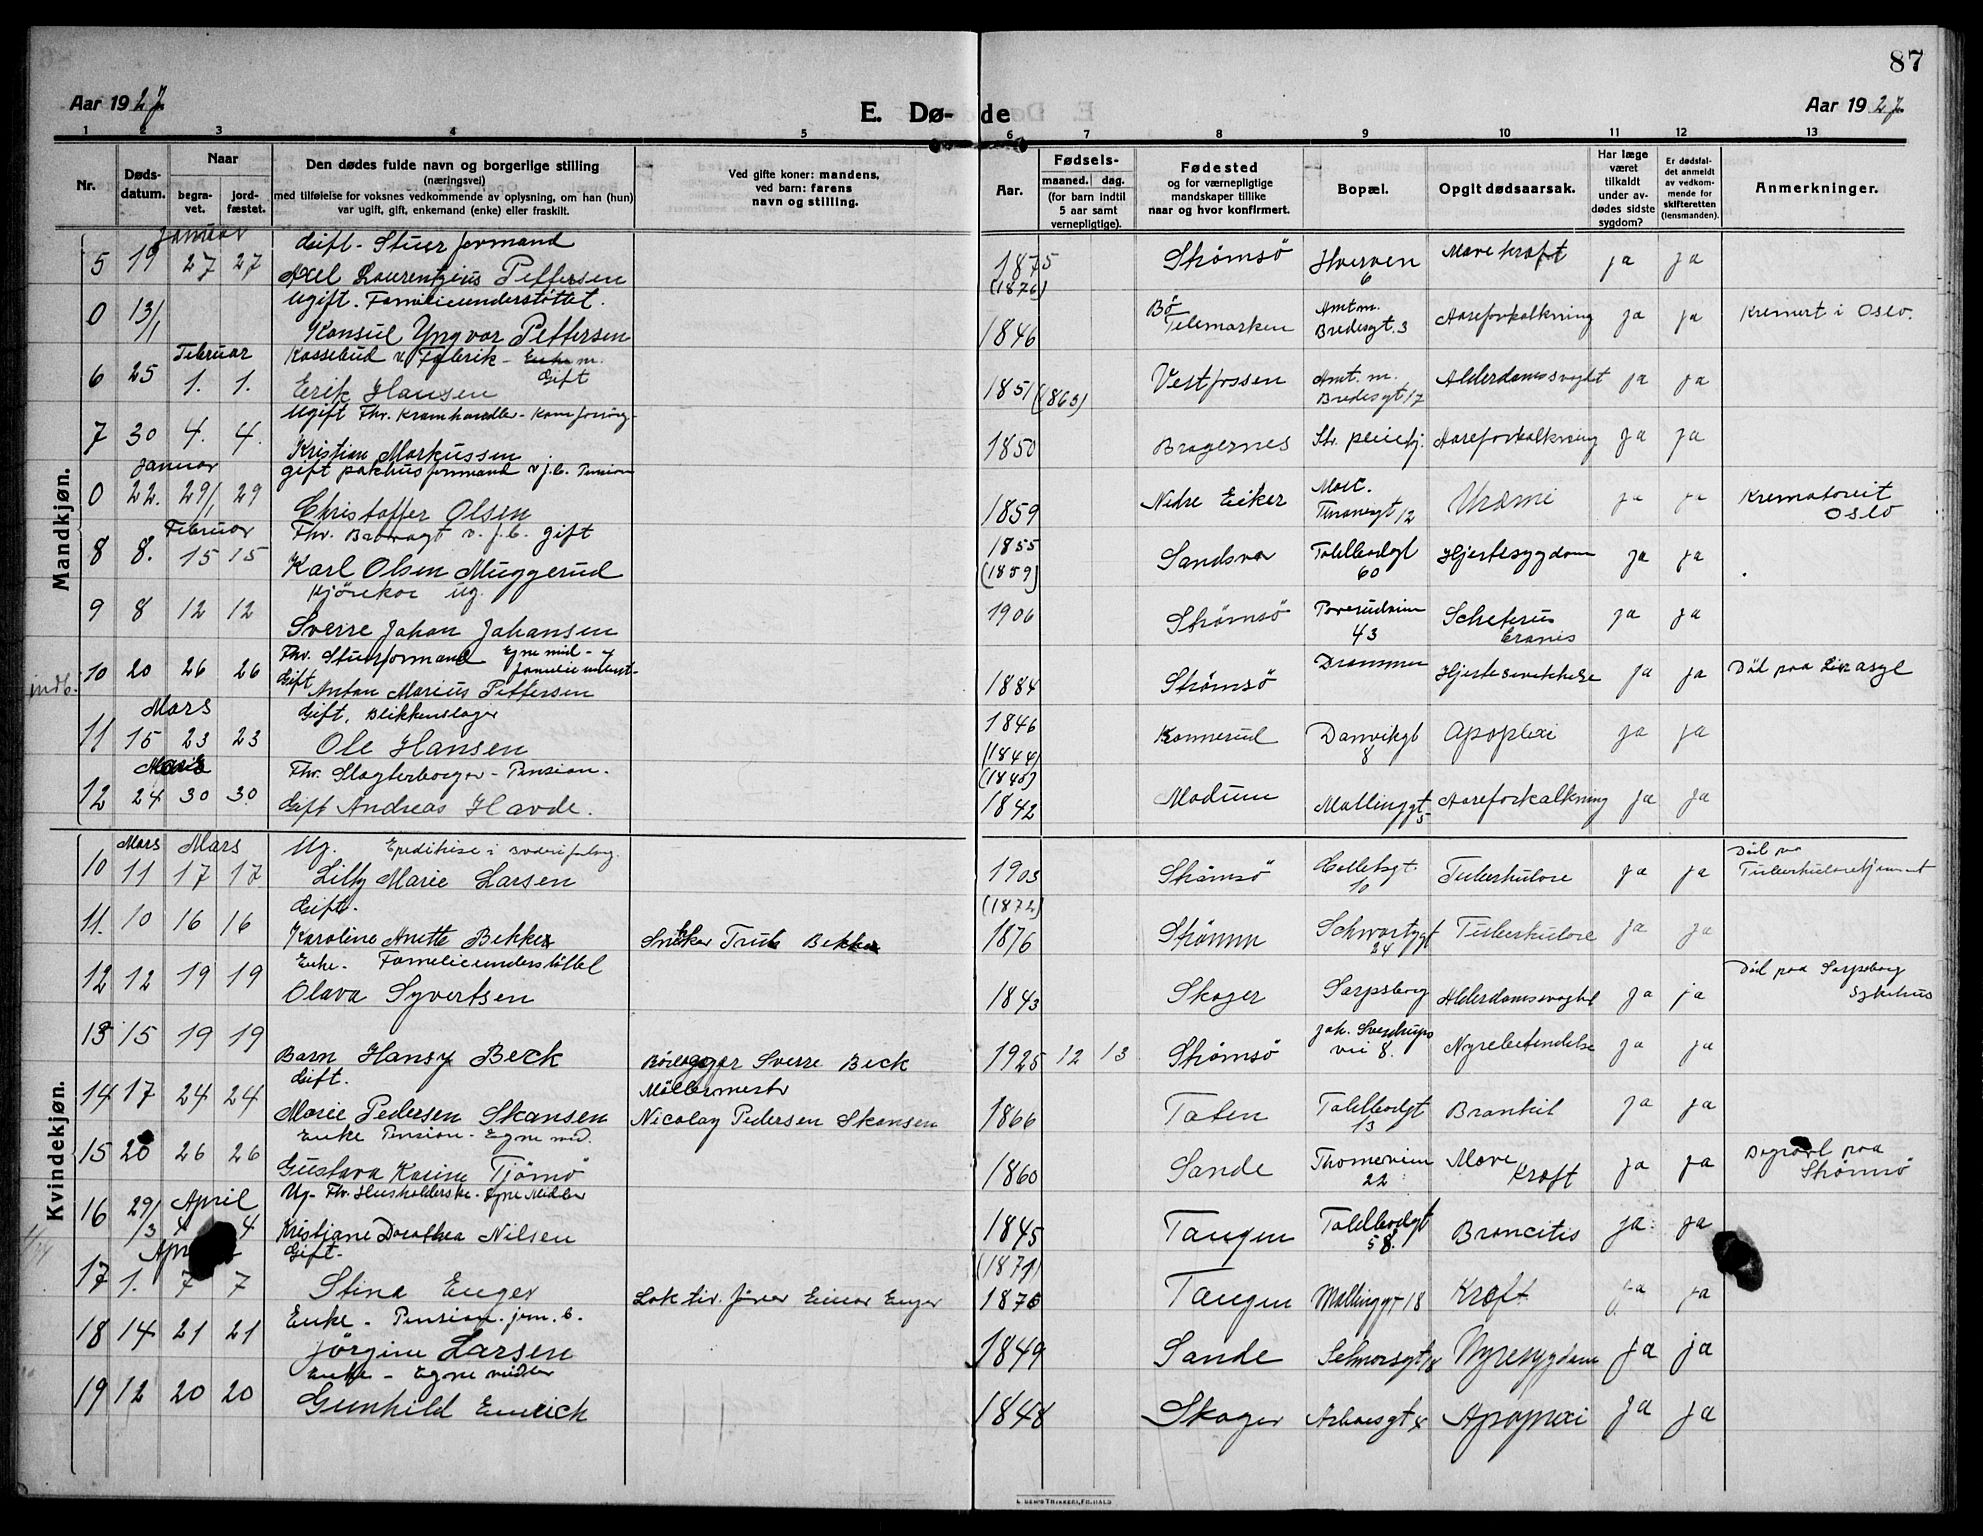 87
Aar 1927.
E. Dø- de
Aar 1927.
1 2 3 4 5 6 7 8 9 10 11 12 13
Nr.
Døds-
datum.
Naar
begra-
vet.
jord-
fæstet.
Den dødes fulde navn og borgerlige stilling
(næringsvei)
med tilføielse for voksnes vedkommende av oplysning, om han (hun)
var ugift, gift, enkemand (enke) eller fraskilt.
Ved gifte koner: mandens,
ved barn: farens
navn og stilling.
Aar.
Fødsels-
maaned. dag.
(for barn indtil
5 aar samt
vernepligtige).
Fødested
og for værnepligtige
mandskaper tillike
naar og hvor konfirmert.
Bopæl.
Opgit dødsaarsak.
Har læge
været
tilkaldt
under av-
dødes sidste
sygdom?
Er dødsfal-
det anmeldt
av vedkom-
mende for
skifteretten
(lensmanden).
Anmerkninger.
Mandkjøn.
Januar Gift - Stuerformand
5 19 27 27 Axel Laurentzius Pettersen 1875 (1876) Strømsö Hverven 6 Mavekræft ja ja
Ugift. Familieunderstøttet.
0 13/1 Konsul Yngvar Pettersen 1846 Bø Telemarken Amtm. Bredesgt. 3 Aareforkalkning ja ja Kremert i Oslo.
Februar Kassebud v Fabrik - Enkem. Gift
6 25 1. 1. Erik Hansen 1851 (1863) Vestfossen Amt. m. Bredesgt 17 Alderdomssvaghet ja ja
Ugift Fhv. Kramhandler - Kom forsørg-
7 30 4. 4. Kristian Markussen 1850 Bragernes Str. pleiehj. Aareforkalkning ja ja
Januar gift pakhusformand v j.b. Pension
0 22. 29/1 29 Christoffer Olsen 1859 Nedre Eiker Marc. Thranesgt 12 Uræmi ja ja Krematoreit Oslo
Februar Fhv. Banvagt v. j.b. gift
8 8. 15 15 Karl Olsen Muggerud 1855 (1859) Sandsvær Toldbodgt 60 Hjertesygdom ja ja
Kjørekar ug.
9 8 12 12 Sverre Johan Johansen 1906 Strømsö 43 ja ja
Fhv. Stuerformand Egne mid- og familie underst-
indb. 10 20 26 26 Gift Anton Marius Pettersen 1884 Strømsö Drammen Hjertesvekkelse ja ja Död paa Lier asyl
Mars Gift, Blikkenslager
11 15 23 23 Ole Hansen 1846 (1844) Konnerud Danvikgt 8 Apoplexi ja ja
Mars Fhv. Slagterborger - Pension.
12 24 30 30. Gift Andreas Havde. (1845) 1842 Modum Mallinggt 5 Aareforkalkning ja ja
Kvindekjøn.
Mars Mars Ug. Expeditrise i
10 11 17 17 Lilly Marie Larsen 1903 Strømsö 10 Tuberkulose ja ja Död paa Tuberkulosehjemmet
Gift.
11. 10 16 16 Karoline Anette Bekker Snekker Bekker (1872) 1876 Strömm Schwartzgt 24 Tuberkulose ja ja
Enke - Familieunderstøttet
12 12 19 19 Olava Syvertsen 1843 Skoger Sarpsborg Alderdomssvaghet ja ja Död paa Sarpsborg Sykehus
13 15 19 19 Barn Hansy Beck Börlægger Sverre Beck 1925 12 13 Strømsö Joh. Sverdrups vei 8. Nyrebetendelse ja ja
Gift.
14 17 24 24 Marie Pedersen Skansen Möllermester Nicolay Pedersen Skansen 1866 Toten Toldbodgt 13 Bronkit ja ja
Enke Pension - Egne mid.
15 20 26 26 Gustava Karine Tjömö 1860 Sande Thornevein 22 Mave Kræft ja ja paa Strømsö
April Ug- Fhv. Husholderske - Egne Midler
16 29/3 4 4 Kristiane Dorothea Nilsen 1845 Tangen Toldbodgt 58. Broncitis ja ja
April Gift.
17 1. 7 7 Stina Enger Lok tiv. fører Einar Enger (1871) 1876 Tangen Mallinggt 18 Kræft ja ja
Enke - Pension. jern. b.
18 14 21 21 Jörgine Larsen 1849 Sande Selmersgt 18 Nyresygdom ja ja
Enke - Egne midler
19 12 20 20 Gunhild Emrick 1848 Skoger Apoplexi ja ja